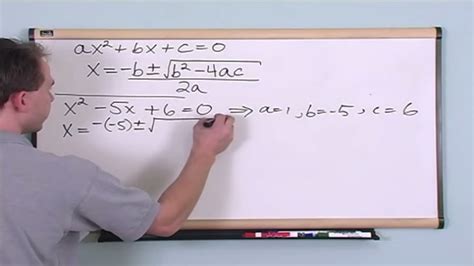 ax² + bx + c = 0
x = -b ± √b² - 4ac / 2a
x² - 5x + 6 = 0 ⇒ a=1, b=-5, c=6
x = -(-5) ± √